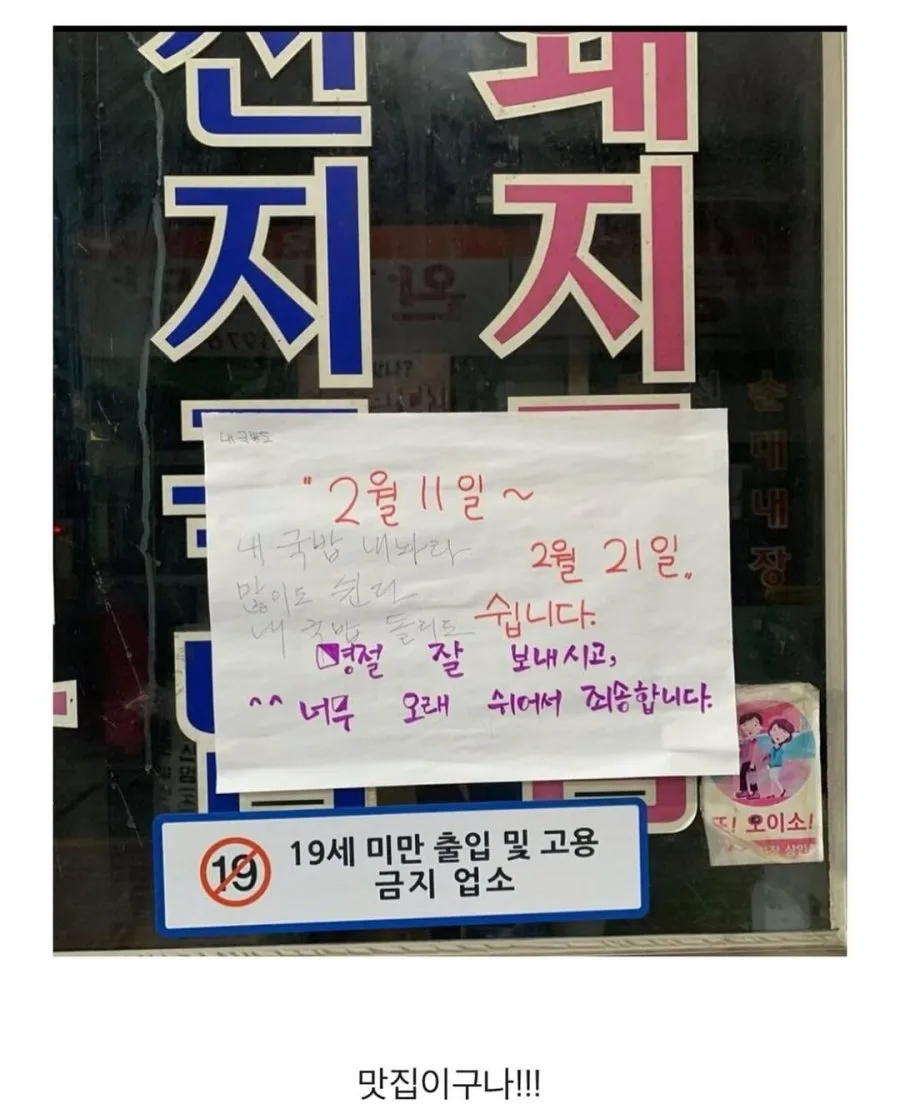 전 돼
지 지
내 국밥도
"2월 11일 ~
2월 21일"
쉽니다.
내 국밥 내놔라
많이도 쉰다
내 국밥 돌리도
명절 잘 보내시고,
^^ 너무 오래 쉬어서 죄송합니다.
순대내장
또! 오이소!
19 19세 미만 출입 및 고용
금지 업소
맛집이구나!!!